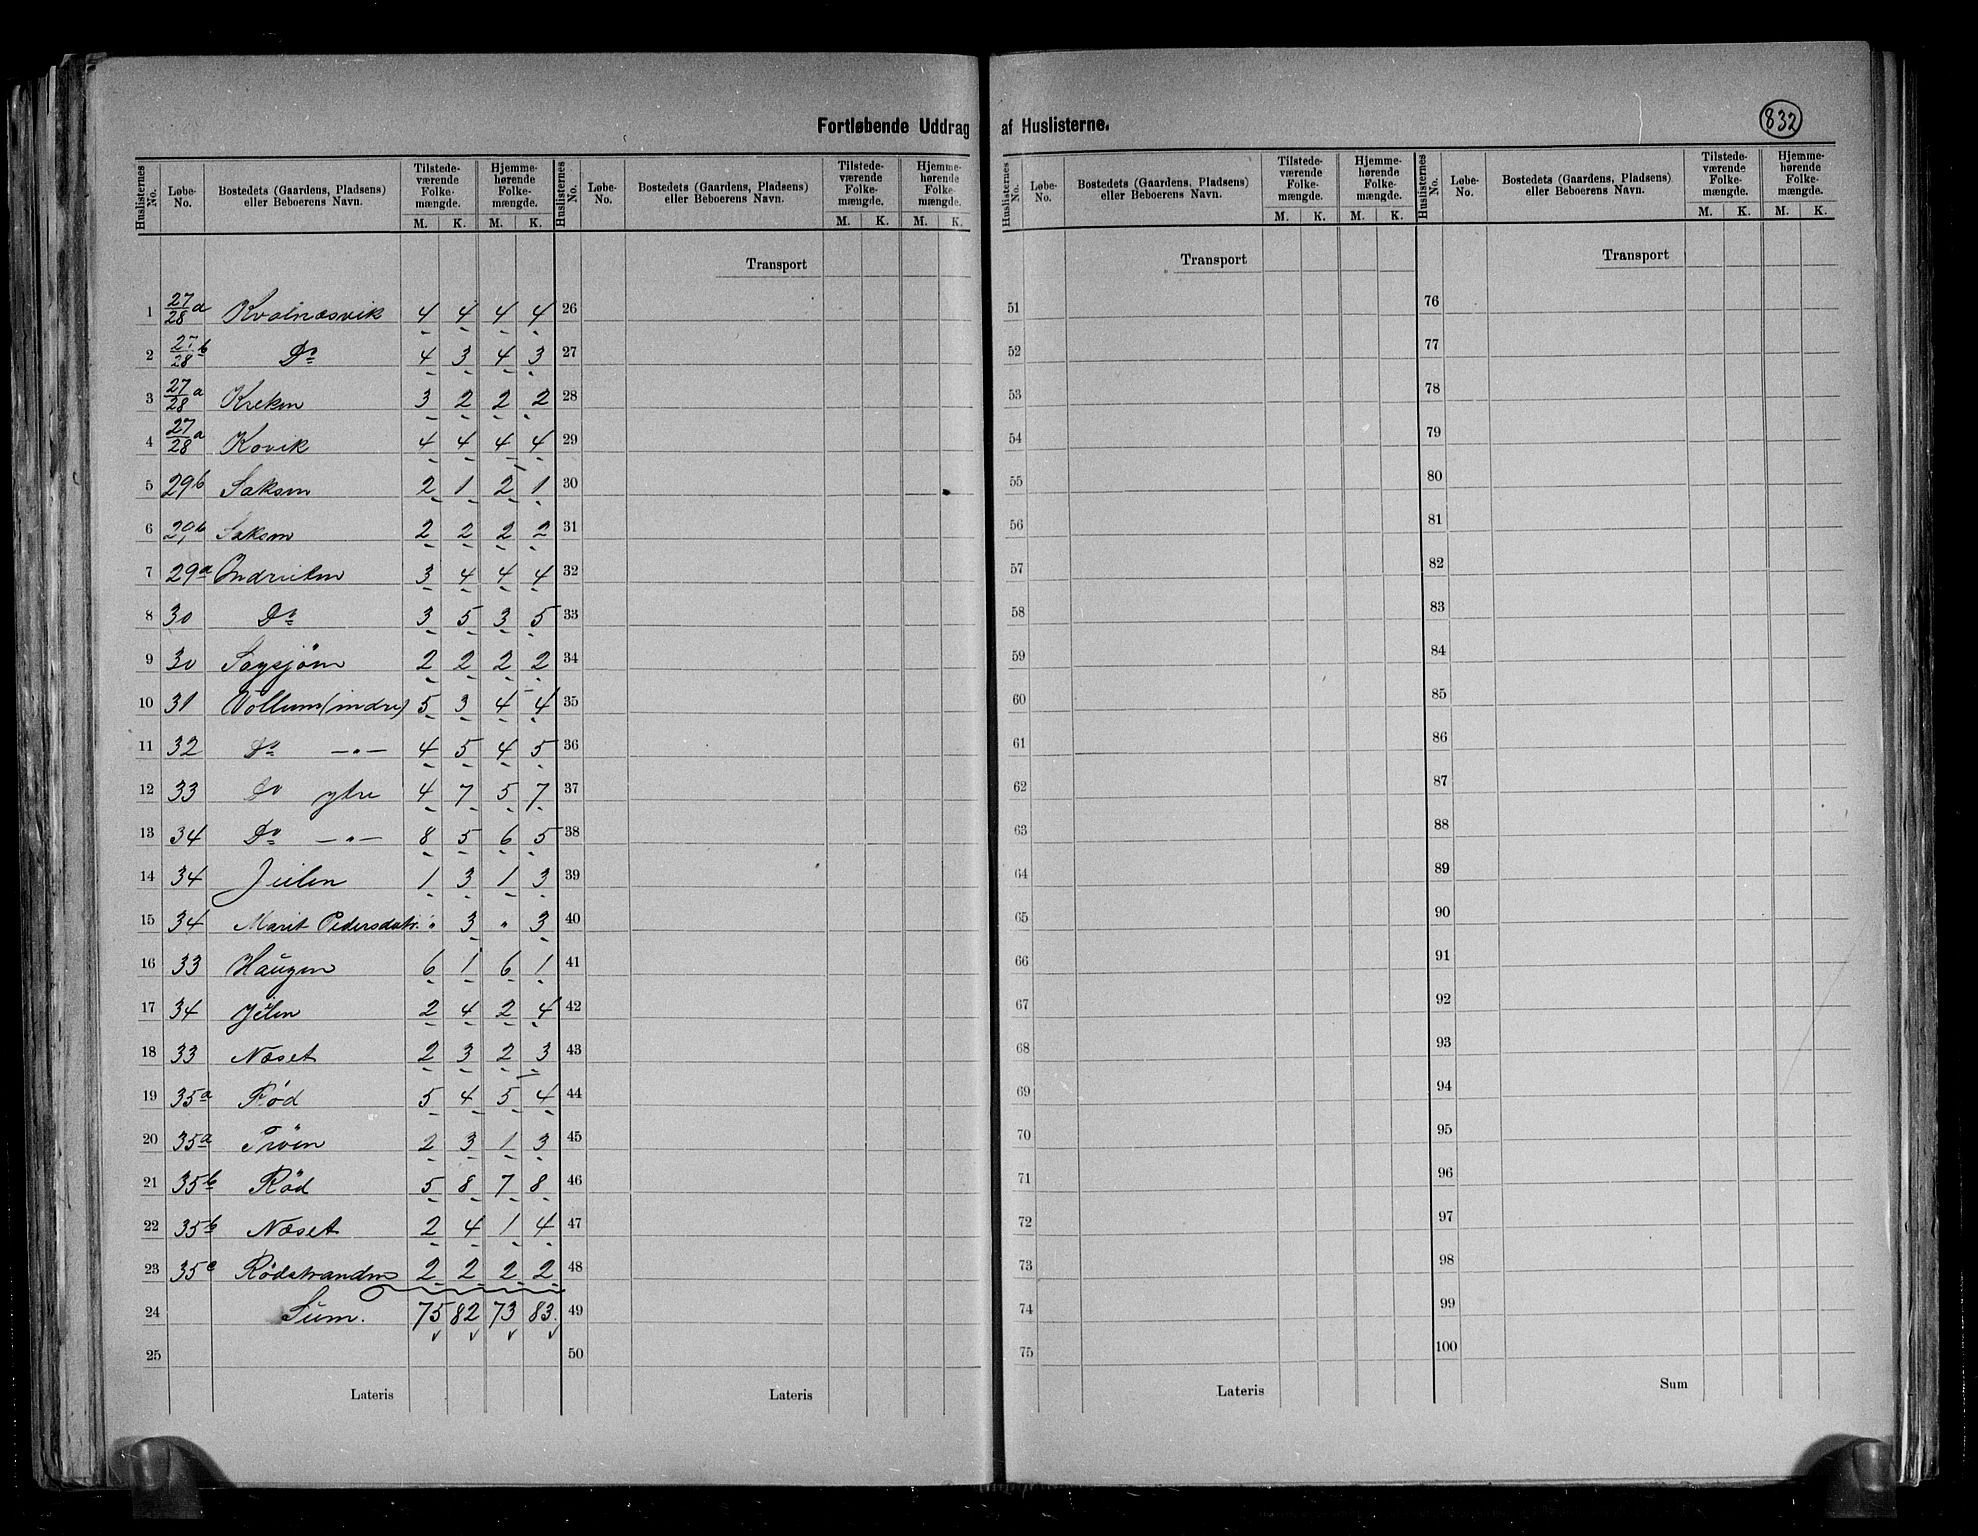 Fortløbende Uddrag af Huslisterne.
832
Huslisternes No. | Løbe-No. | Bostedets (Gaardens, Pladsens) eller Beboerens Navn. | Tilstedeværende Folkemængde. M. K. | Hjemmehørende Folkemængde. M. K.
1 27/28 a Kvalnæsvik 4 4 4 4
2 27/28 b Do 4 3 4 3
3 27/28 a Kreken 3 2 2 2
4 27/28 a Kovik 4 4 4 4
5 29b Saksen 2 1 2 1
6 29b Saksen 2 2 2 2
7 29a 3 4 4 4
8 30 Do 3 5 3 5
9 30 Sagsjøen 2 2 2 2
10 31 Vollum (indre) 5 3 4 4
11 32 Do —„— 4 5 4 5
12 33 Do ytre 4 7 5 7
13 34 Do —„— 8 5 6 5
14 34 1 3 1 3
15 34 Marit Pedersdatr. „ 3 „ 3
16 33 Haugen 6 1 6 1
17 34 2 4 2 4
18 33 Næset 2 3 2 3
19 35a Rød 5 4 5 4
20 35a Trøen 2 3 1 3
21 35b Rød 5 8 7 8
22 35b Næset 2 4 1 4
23 35c Rødstranden 2 2 2 2
24 Sum. 75 82 73 83.
25
Lateris
Huslisternes No. | Løbe-No. | Bostedets (Gaardens, Pladsens) eller Beboerens Navn. | Tilstedeværende Folkemængde. M. K. | Hjemmehørende Folkemængde. M. K.
Transport
26
27
28
29
30
31
32
33
34
35
36
37
38
39
40
41
42
43
44
45
46
47
48
49
50
Lateris
Huslisternes No. | Løbe-No. | Bostedets (Gaardens, Pladsens) eller Beboerens Navn. | Tilstedeværende Folkemængde. M. K. | Hjemmehørende Folkemængde. M. K.
Transport
51
52
53
54
55
56
57
58
59
60
61
62
63
64
65
66
67
68
69
70
71
72
73
74
75
Lateris
Huslisternes No. | Løbe-No. | Bostedets (Gaardens, Pladsens) eller Beboerens Navn. | Tilstedeværende Folkemængde. M. K. | Hjemmehørende Folkemængde. M. K.
Transport
76
77
78
79
80
81
82
83
84
85
86
87
88
89
90
91
92
93
94
95
96
97
98
99
100
Sum